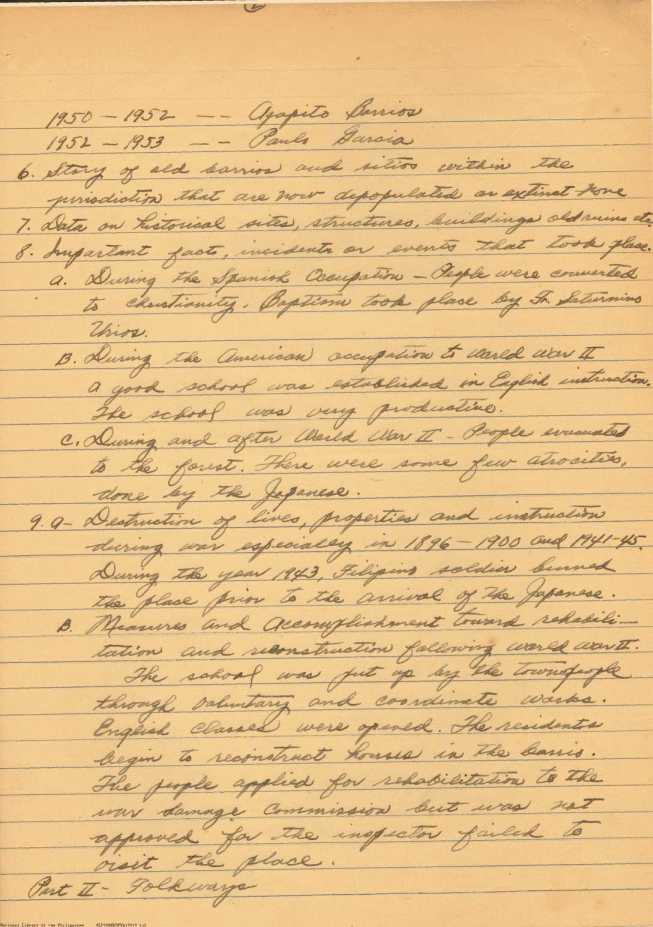 1950 - 1952 -- Agapito Barrios
1952 - 1953 -- Paulo Garcia
6. Story of old barrios and sitios within the
jurisdiction that are now depopulated or extinct - None
7. Data on historical sites, structures, buildings old ruins etc.
8. Important facts, incidents or events that took place.
a. During the Spanish Occupation - People were converted
to christianity. Baptism took place by Fr. Saturnino
Urios.
B. During the American occupation to World War II
a good school was established in English instruction.
The school was very productive.
C. During and after World War II - People evacuated
to the forest. There were some few atrocities,
done by the Japanese.
9. a- Destruction of lives, properties and instruction
during war especially in 1896 - 1900 and 1941-45.
During the year 1943, Filipino soldier burned
the place prior to the arrival of the Japanese.
B. Measures and Accomplishment toward rehabili-
tation and reconstruction following world war II.
The school was put up by the townspeople
through voluntary and coordinate works.
English classes were opened. The residents
begin to reconstruct houses in the barrio.
The people applied for rehabilitation to the
war damage Commission but was not
approved for the inspector failed to
visit the place.
Part II - Folkways
National Library of the Philippines